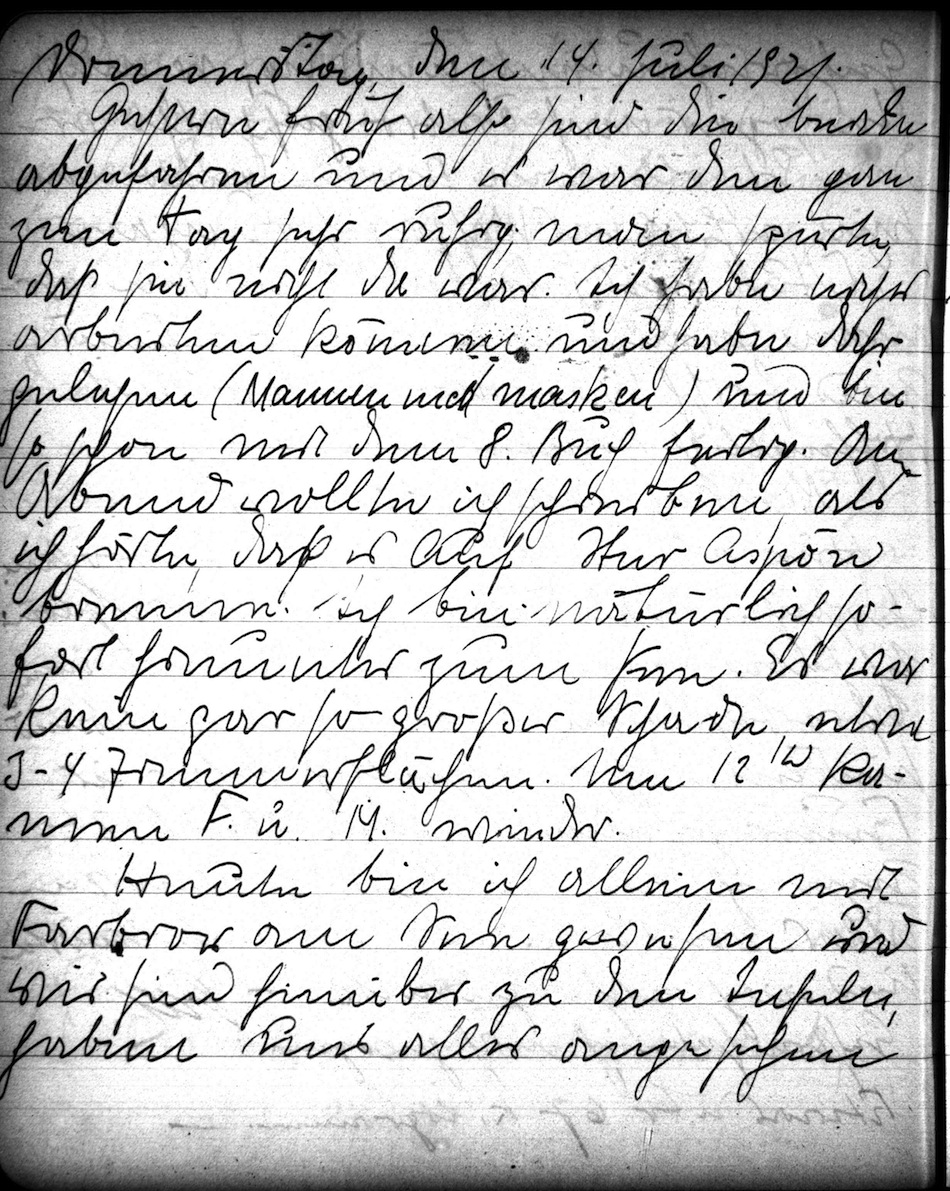 Donnerstag, den 14. Juli 1921.
Gestern früh also sind die beiden
abgefahren und es war den gan
zen Tag sehr ruhig, man spürte,
daß sie nicht da war. Ich habe
arbeiten können und habe
gelesen (Mannen med masken) und bin
so schon mit dem 8. Buch fertig. Am
Abend wollte ich schreiben, als
ich hörte, daß es auf Stur Aspön
brenne. Ich bin natürlich so-
fort hinunter zum See. Es war
kein gar so großer Schade, etwa
3-4 Zimmerflächen. Um 12 ka-
men F. u. M. wieder.
Heute bin ich allein mit
Farbror am See gewesen und
wir sind hinüber zu den Inseln,
haben uns alles angesehen